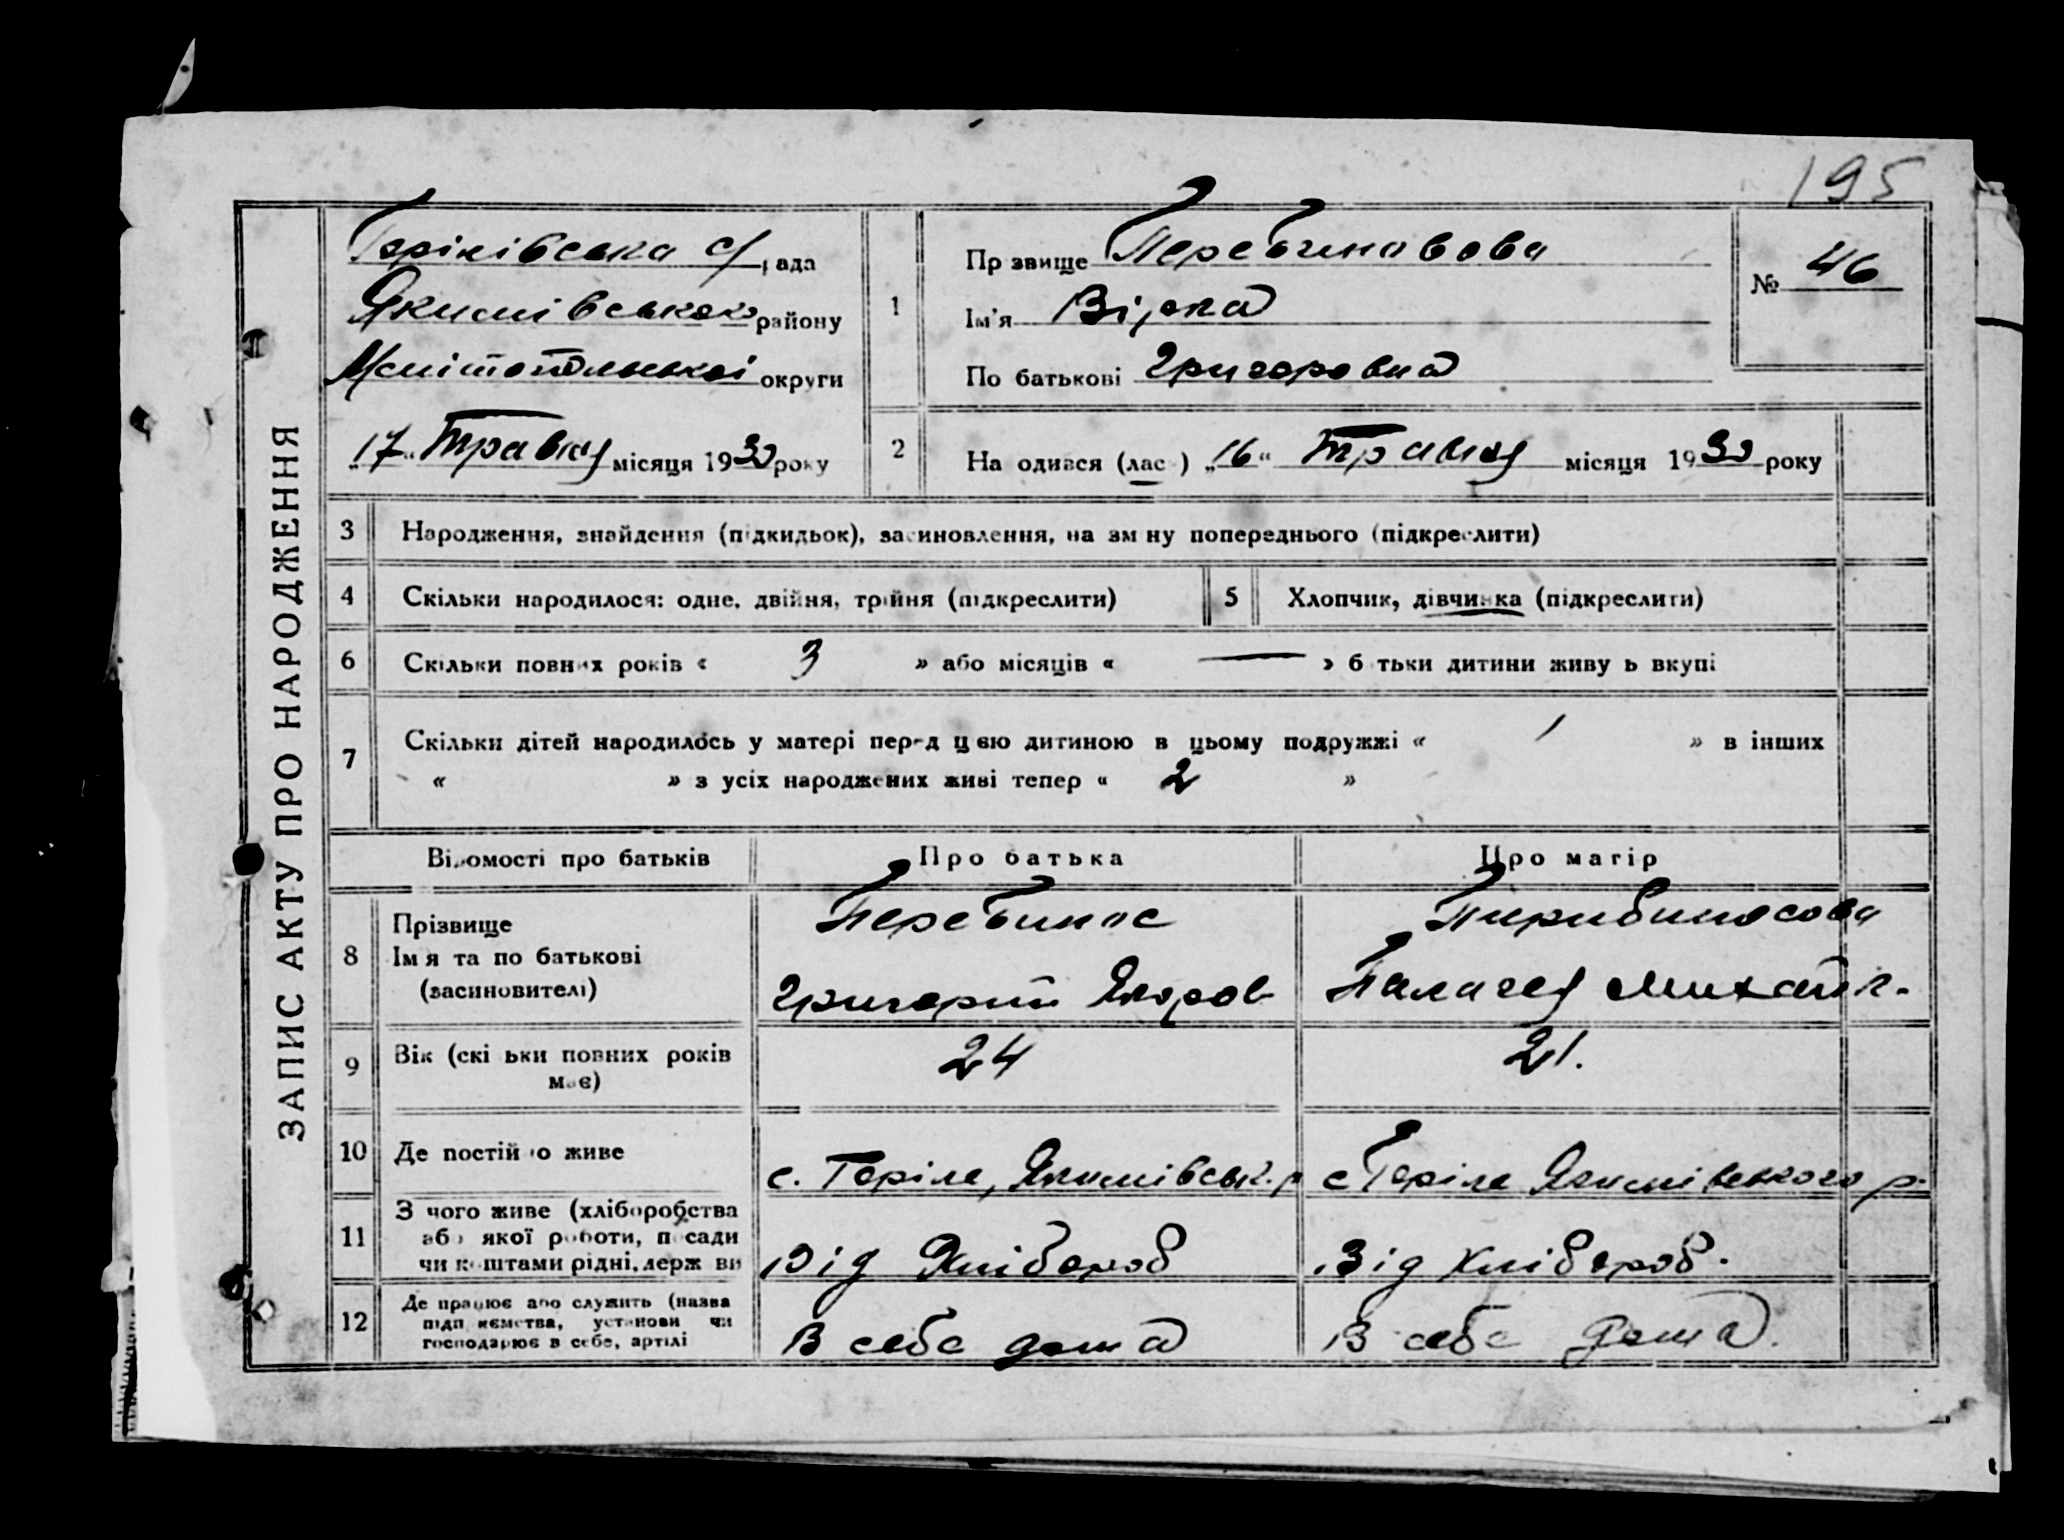 195
Горіківська с/рада
Якимівського району
Мелітопольської округи
„17“ Травня місяця 1930 року
1
Прзвище
Ім'я Вірка
По батькові Григоровна
№ 46
2
На одився (лас ) „16“ Травня місяця 1930 року
ЗАПИС АКТУ ПРО НАРОДЖЕННЯ
3 Народження, знайдення (підкидьок), засиновлення, на зм ну попереднього (підкреслити)
4 Скільки народилося: одне, двійня, трійня (підкреслити)
5 Хлопчик, дівчинка (підкреслити)
6 Скільки повних років « 3 » або місяців « — » б тьки дитини живу ь вкупі
7 Скільки дітей народилось у матері перед цією дитиною в цьому подружжі « 1 » в інших
« » з усіх народжених живі тепер « 2 »
Відомості про батьків
Про батька
Про матір
8 Прізвище
Ім я та по батькові
(засиновителі)
Перебинос
Григорий Егоров
Перебиносова
Палагея Михайл.
9 Вік (скі ьки повних років
має)
24
21.
10 Де постійно живе
с. Горіле, Якимівськ. р
с Горіле Якимівського р.
11 З чого живе (хліборобства
або якої роботи, посади
чи коштами рідні, держ ви
Від Хлібороб
Від Хлібороб.
12 Де працює або служить (назва
підп иємства, установи чи
господарює в себе, артілі
В себе дома
В себе дома.